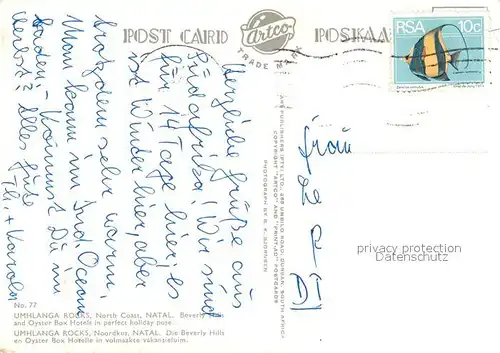 POST CARD
Artco
TRADE MARK
POSKAA
RSA 10c
Herzliche Grüße aus
Südafrika! Wir sind
für 14 Tage hier, es
ist Winter hier, aber
trotzdem sehr warm.
Man kann im Ind. Ocean
baden. Kommst Du im
Herbst? Alles Gute
Frau
privacy protection
Datenschutz
ART PUBLISHERS (PTY) LTD., UMBILO ROAD, DURBAN, SOUTH AFRICA
COPYRIGHT "ARTCO" AND POSTCARDS
PHOTOGRAPH BY
No. 77
UMHLANGA ROCKS, North Coast, NATAL. Beverly Hills
and Oyster Box Hotels in perfect holiday pose
UMHLANGA ROCKS, Noordkus, NATAL. Die Beverly Hills
en Oyster Box Hotelle in volmaakte vakansieluim.